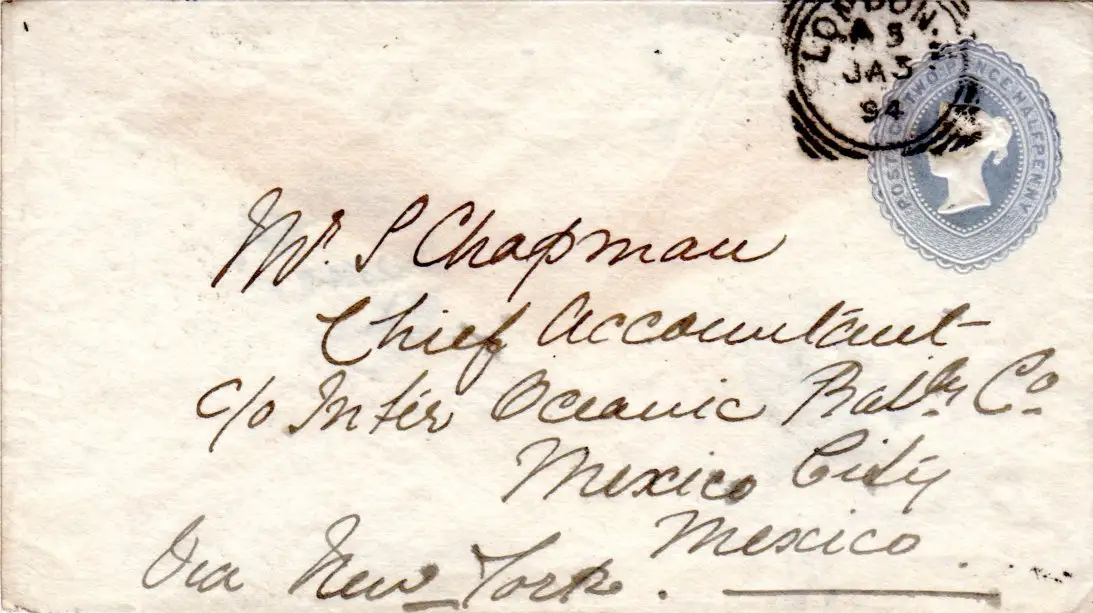 LONDON.
A 3
JA 3
94
POSTAGE TWO PENCE HALFPENNY
Mr. S Chapman
Chief Accountant
c/o Inter Oceanic Railwy Co.
Mexico City
Mexico
Via New York.